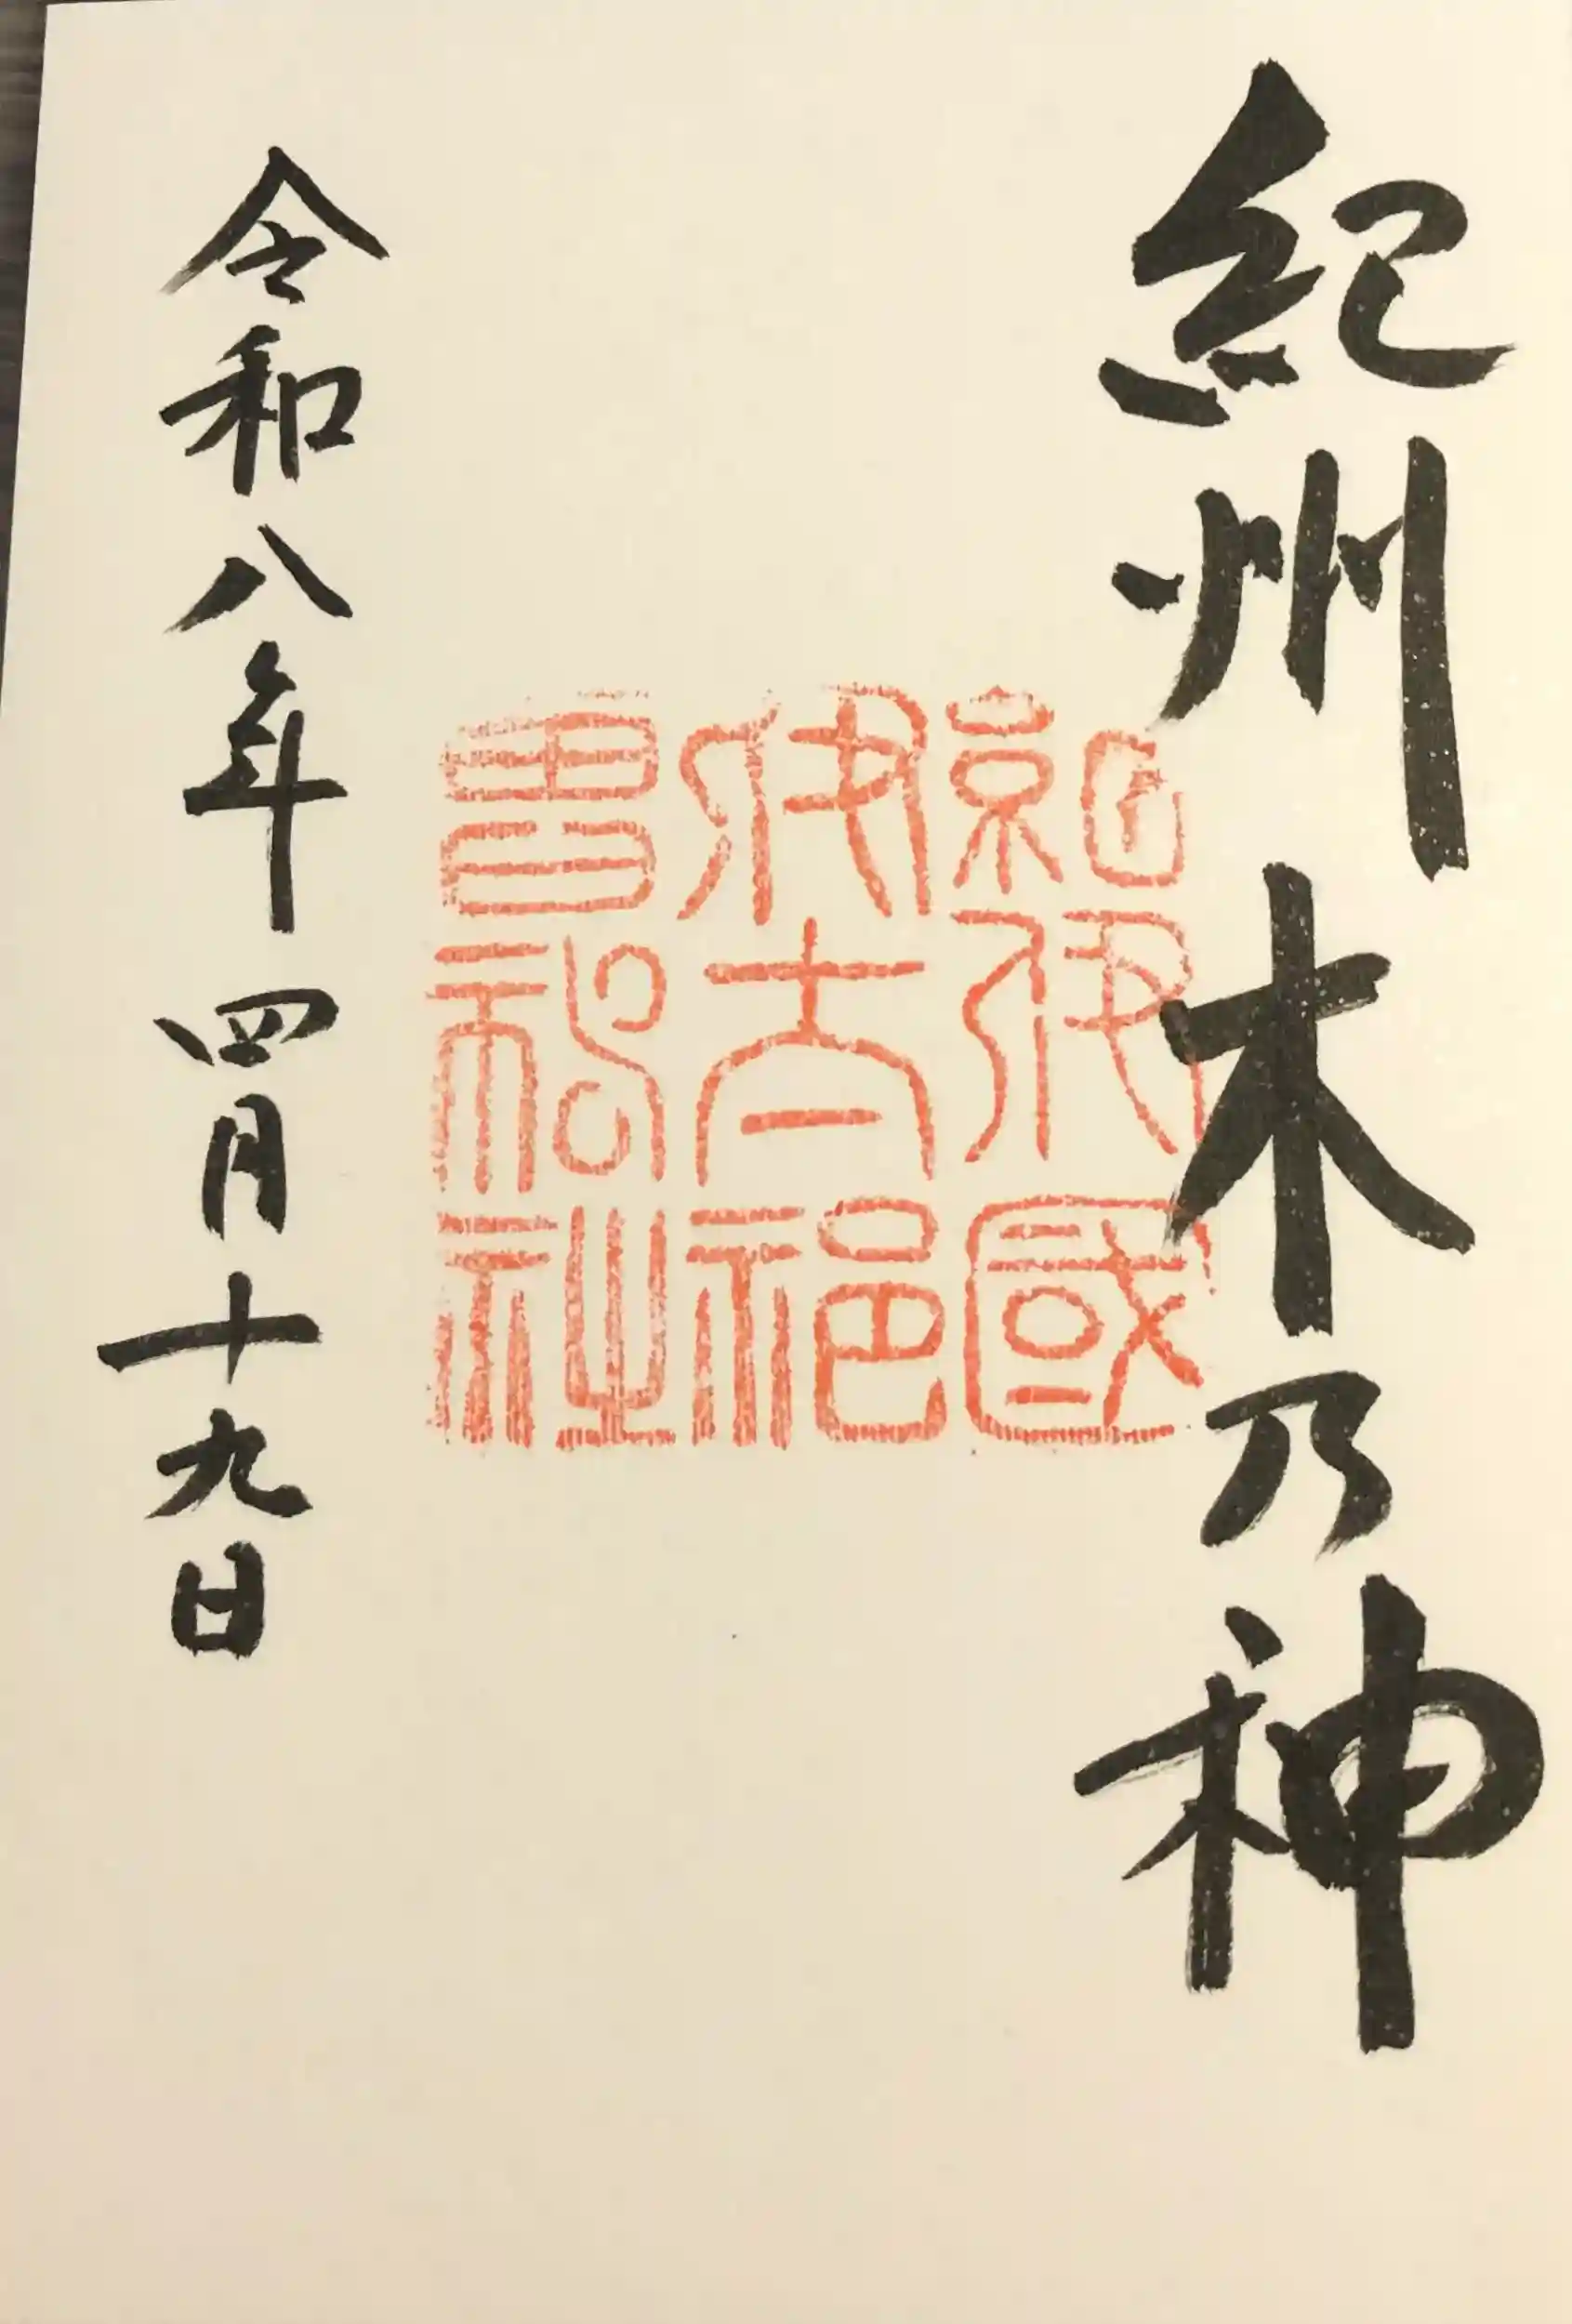 紀州木乃神
紀伊國
伊太祁
曽神社
令和八年四月十九日